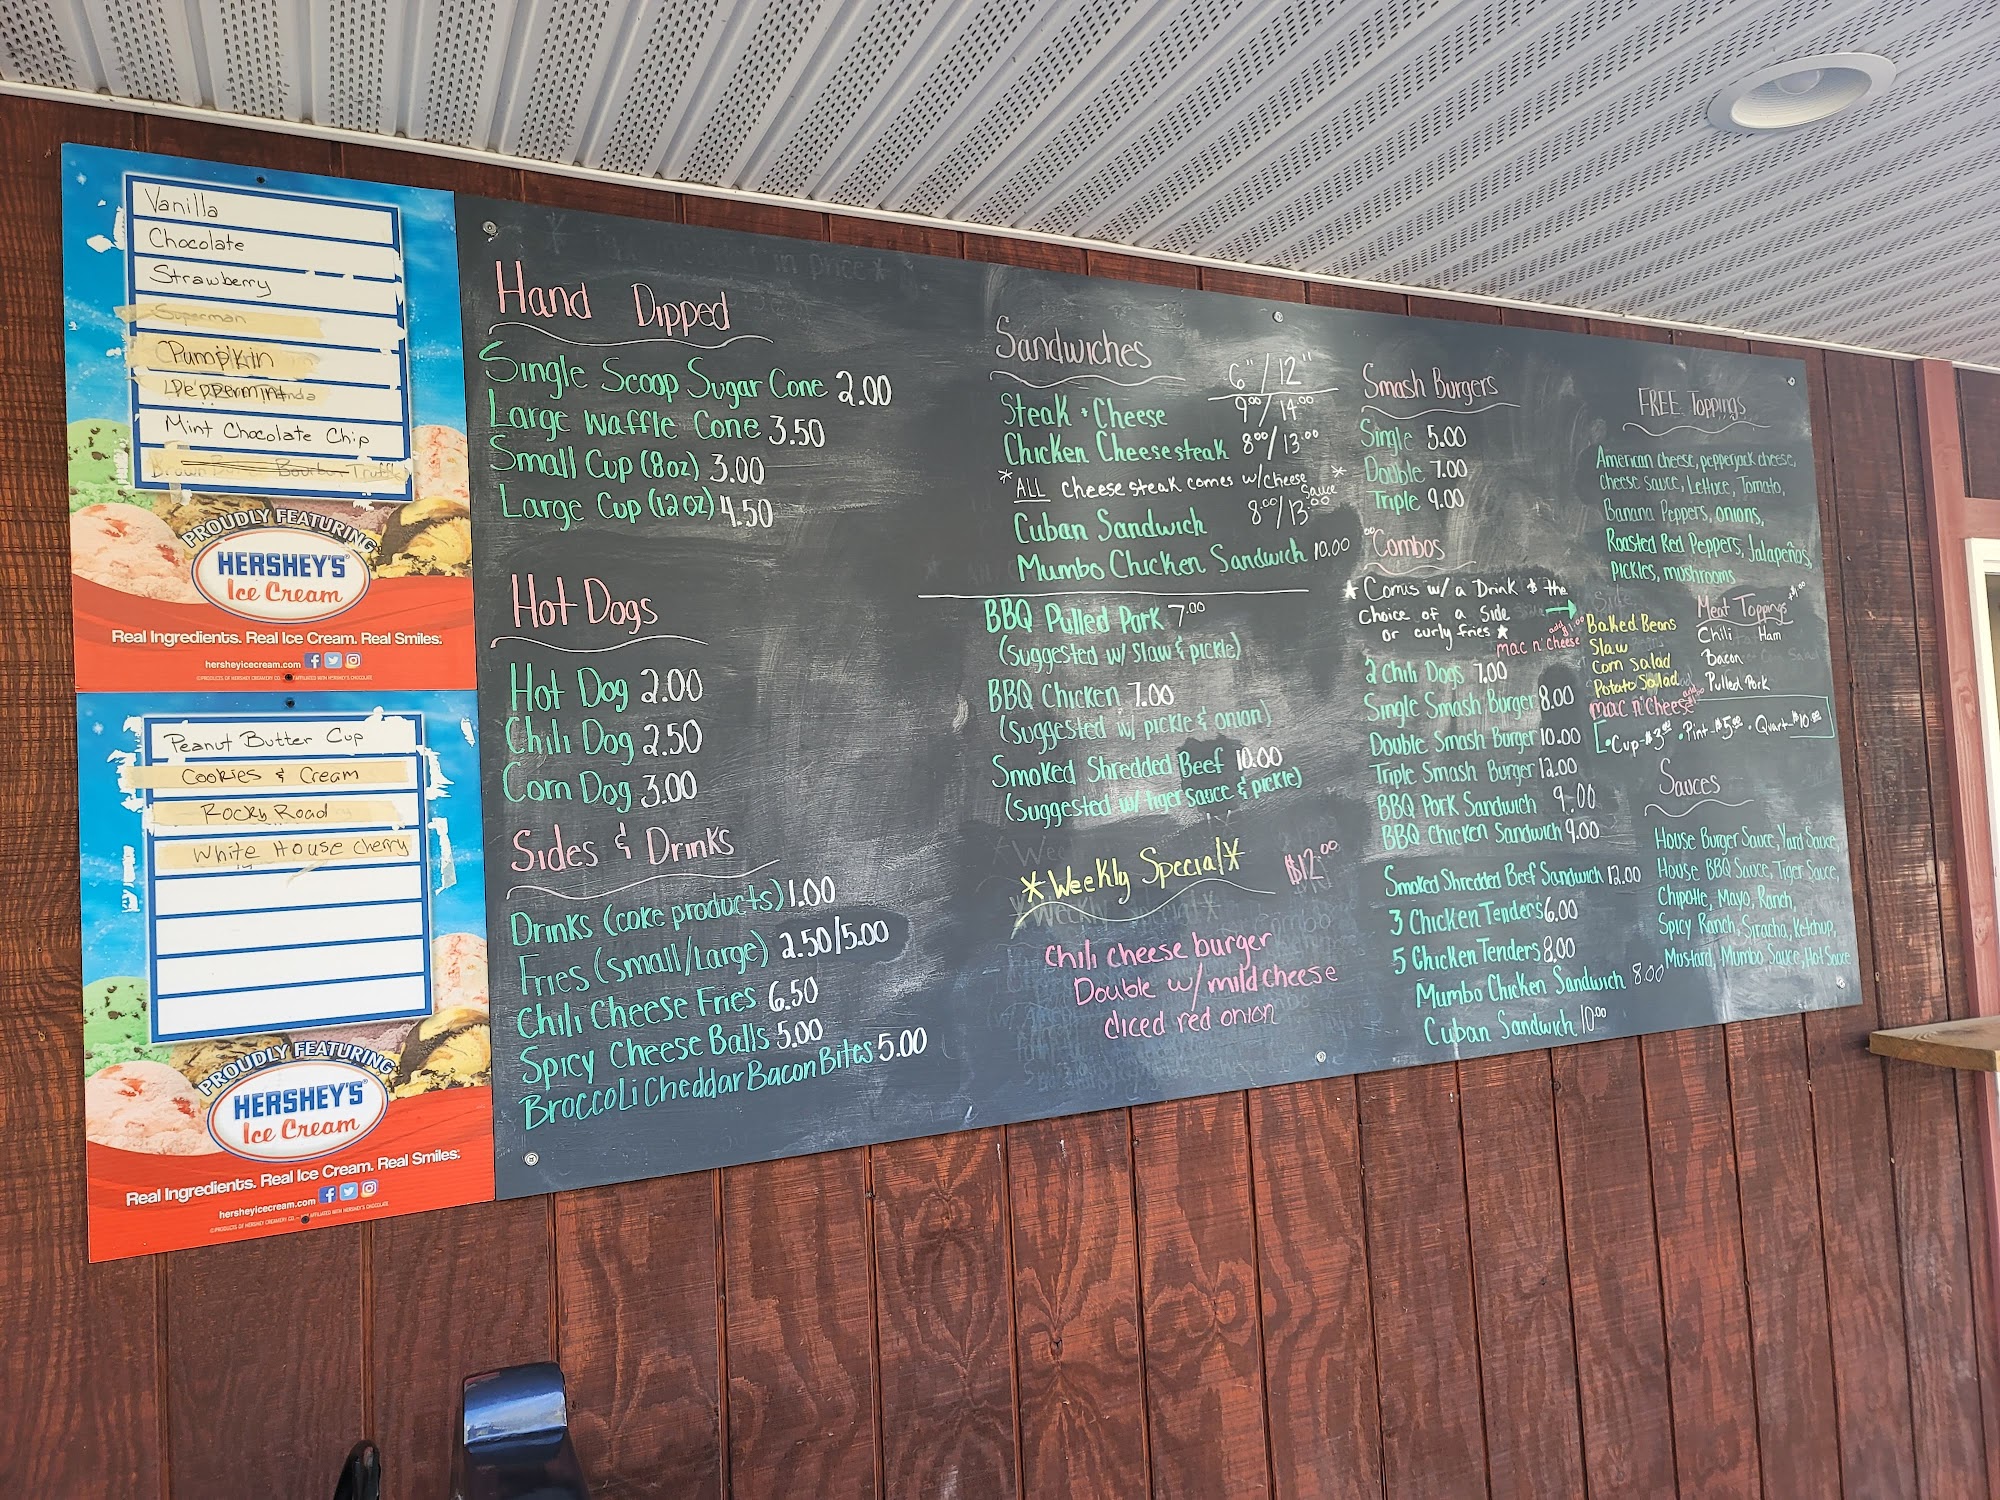 Vanilla
Chocolate
Strawberry
Superman
Pumpkin
Peppermint
Mint Chocolate Chip
Bourbon Truffle
PROUDLY FEATURING
HERSHEY'S
Ice Cream
Real Ingredients. Real Ice Cream. Real Smiles.
hersheyicecream.com
Peanut Butter Cup
Cookies & Cream
Rocky Road
White House Cherry
PROUDLY FEATURING
HERSHEY'S
Ice Cream
Real Ingredients. Real Ice Cream. Real Smiles.
hersheyicecream.com
Hand Dipped
Single Scoop Sugar Cone 2.00
Large Waffle Cone 3.50
Small Cup (8oz) 3.00
Large Cup (12oz) 4.50
Hot Dogs
Hot Dog 2.00
Chili Dog 2.50
Corn Dog 3.00
Sides & Drinks
Drinks (coke products) 1.00
Fries (small/Large) 2.50/5.00
Chili Cheese Fries 6.50
Spicy Cheese Balls 5.00
Broccoli Cheddar Bacon Bites 5.00
Sandwiches
6"/12"
Steak + Cheese 9.00/14.00
Chicken Cheesesteak 8.00/13.00
* ALL cheesesteak comes w/cheese sauce *
Cuban Sandwich 8.00/13.00
Mumbo Chicken Sandwich 10.00
BBQ Pulled Pork 7.00
(suggested w/ slaw & pickle)
BBQ Chicken 7.00
(suggested w/ pickle & onion)
Smoked Shredded Beef 10.00
(suggested w/ tiger sauce & pickle)
*Weekly Special* $12.00
Chili cheese burger
Double w/ mild cheese
diced red onion
Smash Burgers
Single 5.00
Double 7.00
Triple 9.00
Combos
* Coms w/ a Drink & the
choice of a Side
or curly fries *
add $1.00
mac n' cheese
2 Chili Dogs 7.00
Single Smash Burger 8.00
Double Smash Burger 10.00
Triple Smash Burger 12.00
BBQ Pork Sandwich 9.00
BBQ Chicken Sandwich 9.00
Smoked Shredded Beef Sandwich 12.00
3 Chicken Tenders 6.00
5 Chicken Tenders 8.00
Mumbo Chicken Sandwich 8.00
Cuban Sandwich 10.00
FREE Toppings
American cheese, pepperjack cheese,
cheese sauce, Lettuce, Tomato,
Banana Peppers, onions,
Roasted Red Peppers, Jalapeños,
pickles, mushrooms
Baked Beans
Slaw
Corn Salad
Potato Salad
mac n' cheese add $1.00
Meat Toppings +$1.00
Chili Ham
Bacon
Pulled Pork
• Cup-$3.00 • Pint-$5.00 • Quart-$10.00
Sauces
House Burger Sauce, Yard Sauce,
House BBQ Sauce, Tiger Sauce,
Chipotle, Mayo, Ranch,
Spicy Ranch, Siracha, Ketchup,
Mustard, Mumbo Sauce, Hot Sauce